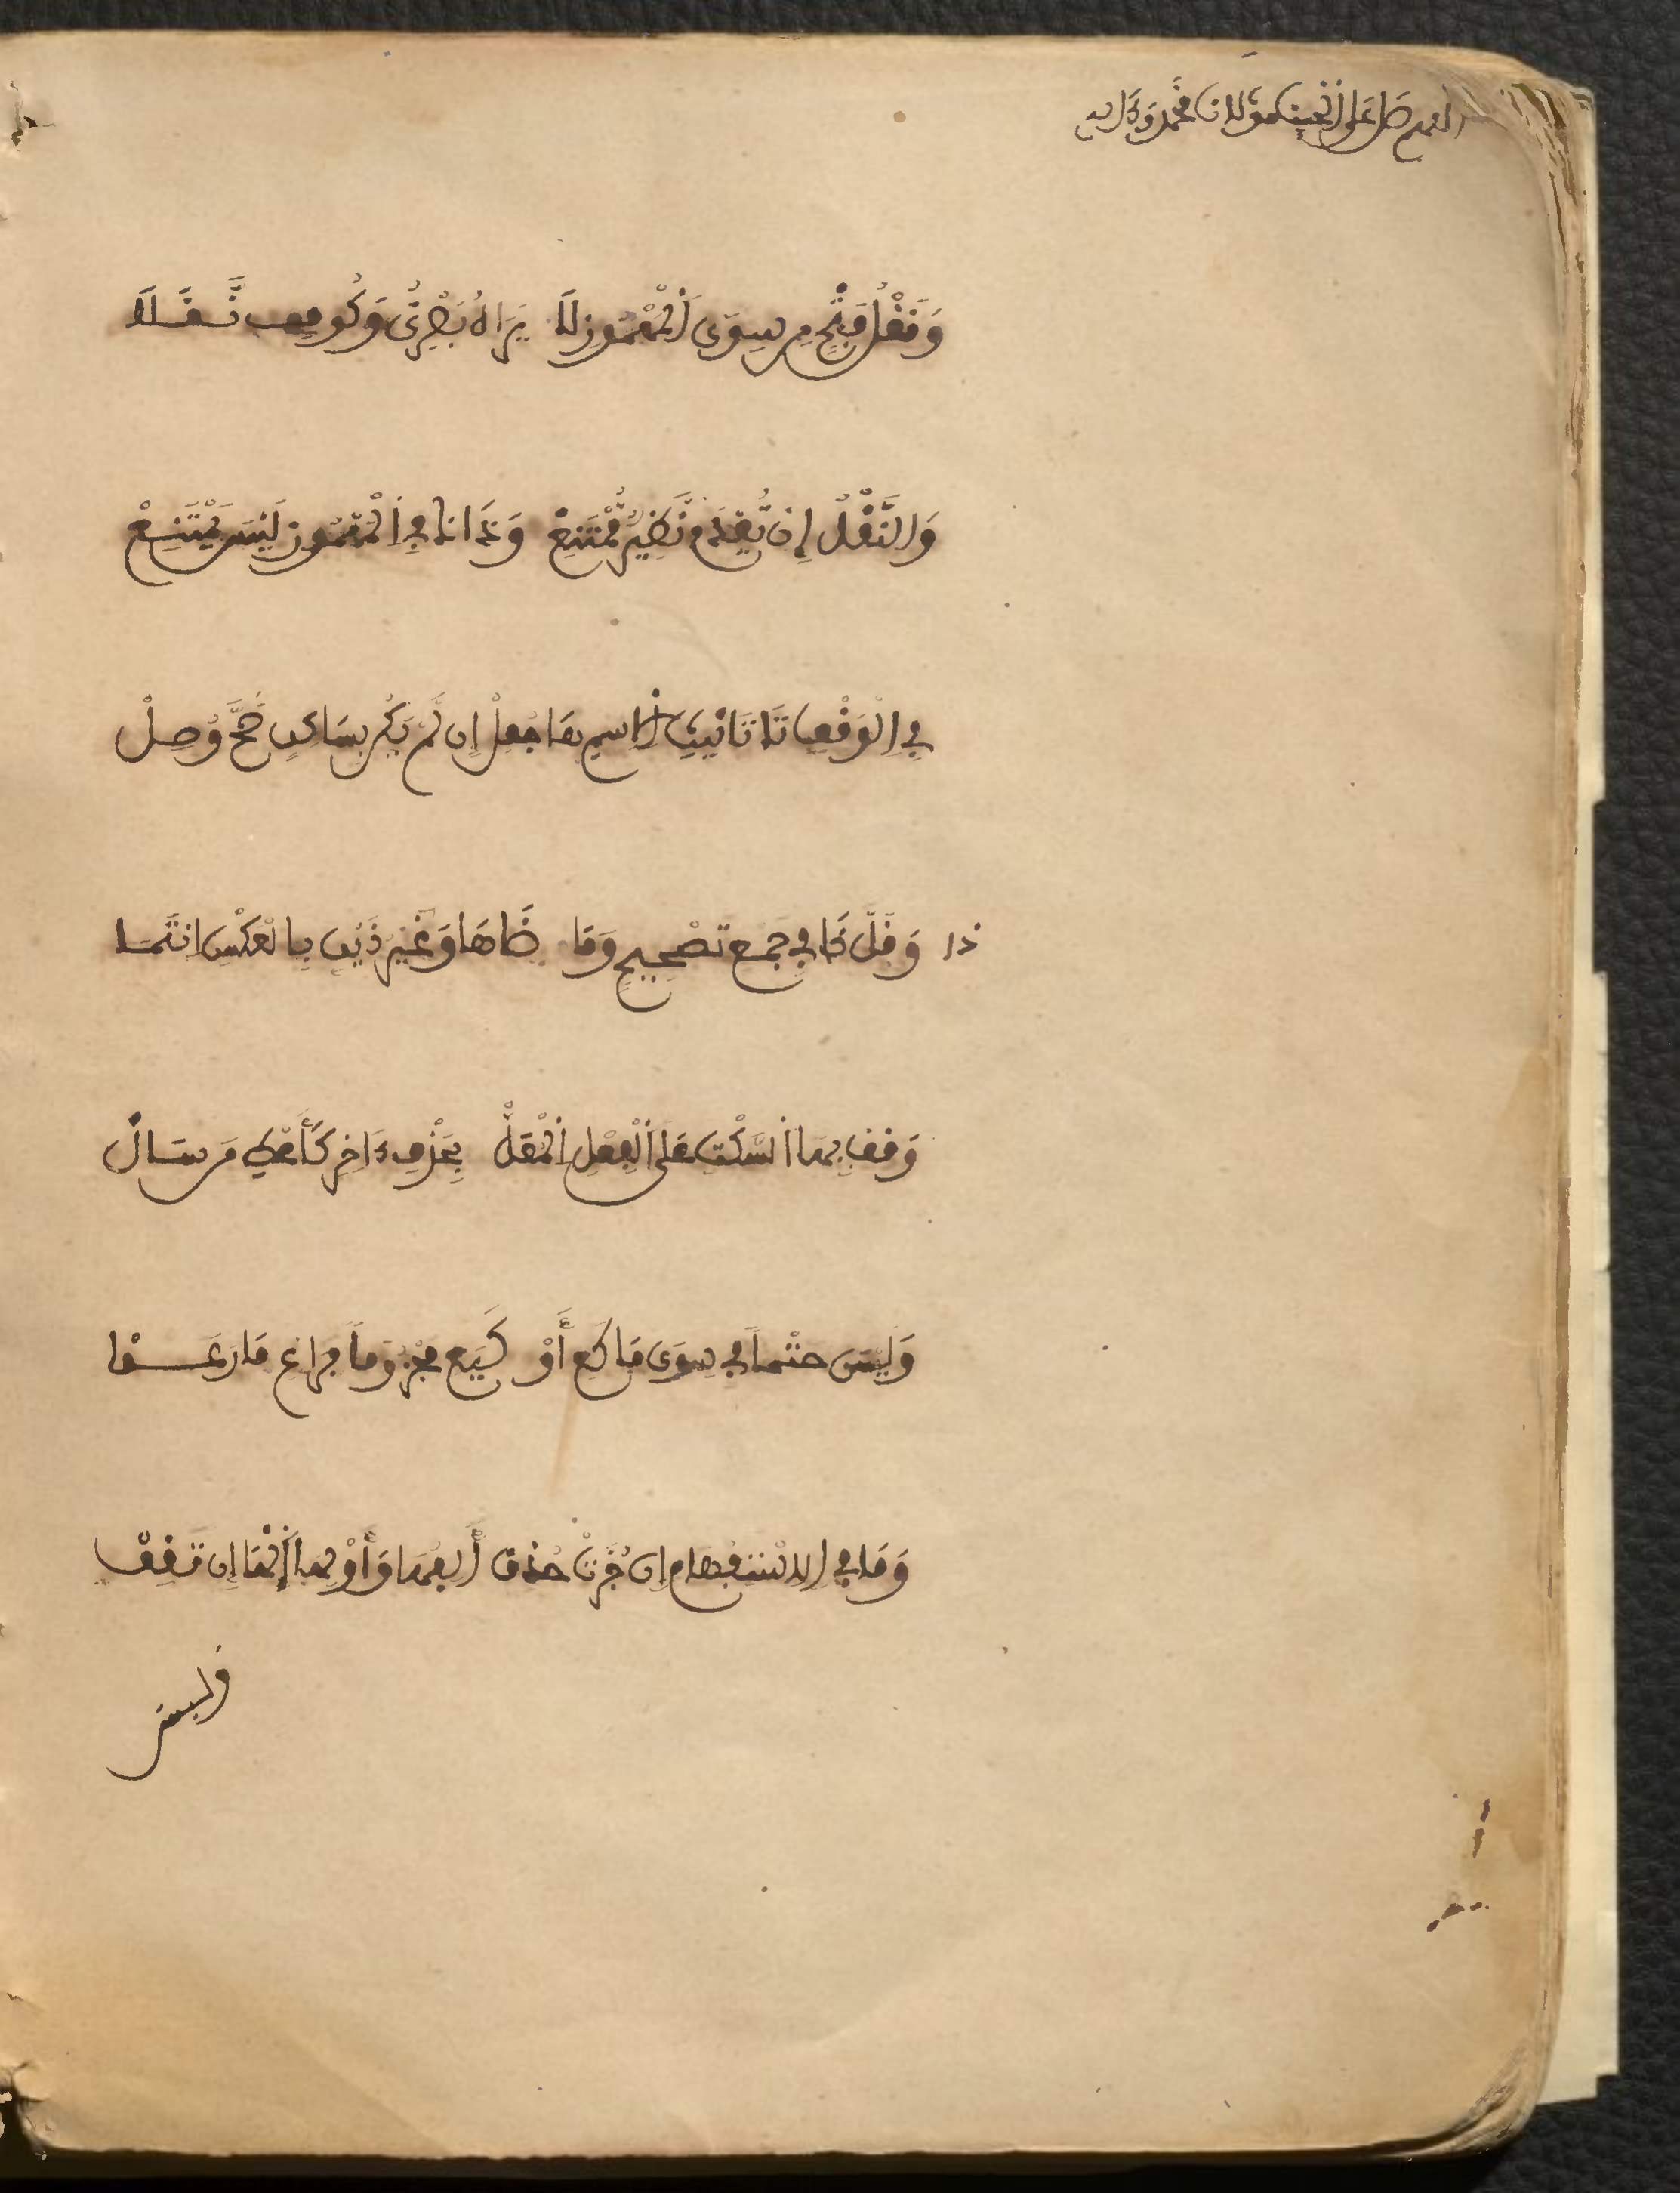 اللهم صل على الحبيب مولانا محمد وءاله
وَنَقْلُ فَتْحٍ مِن سِوَى الْمَهْمُوزِ لَا يَرَاهُ بَصْرِيٌّ وَكُوفٍ نَّقَلَا
وَالنَّقْلُ إِن يُّعْدَمْ نَّظِيرٌ مُّمْتَنِعْ وَذَاكَ فِي الْمَهْمُوزِ لَيْسَ يَمْتَنِعْ
فِي الْوَقْفِ تَا تَانِيثِ الِاسْمِ هَا جُعِلْ إِن لَّمْ يَكُن بِسَاكِنٍ صَحَّ وُصِلْ
ذا وَقَلَّ ذَا فِي جَمْعِ تَصْحِيحٍ وَمَا ضَاهَا وَغَيْرُ ذَيْنِ بِالْعَكْسِ انتَمَا
وَقِفْ بِهَا السَّكْتِ عَلَى الْفِعْلِ الْمُعَلّْ بِحَذْفِ ءَاخِرٍ كَأَعْطِ مَن سَالْ
وَلَيْسَ حَتْماً فِي سِوَى مَا كَعِ أَوْ كَيَعِ مَجْزُوماً فَرَاعِ مَا رَعَوْا
وَمَا فِي الِاسْتِفْهَامِ إِن جُرَّتْ حُذِفْ أَلِفُهَا وَأَوْلِهَا الْهَا إِن تَقِفْ
وليس